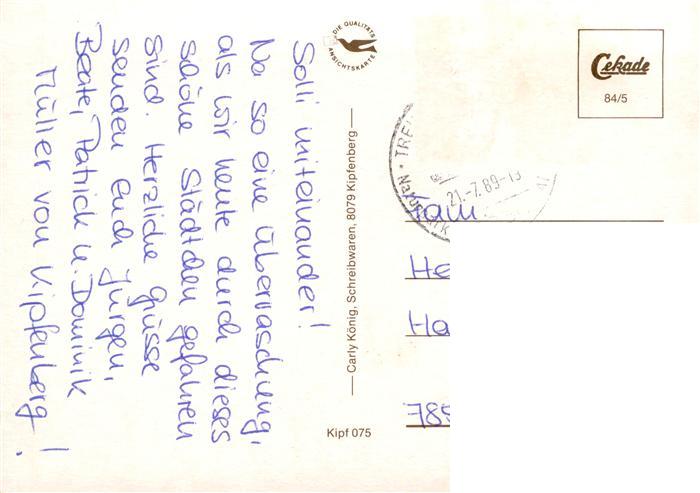 Solli miteinander!
Na so eine Überraschung,
als wir heute durch dieses
schöne Städtchen gefahren
sind. Herzliche Grüsse
senden Euch Jürgen,
Beate, Patrick u. Dominik
Müller von Kipfenberg!
DIE QUALITÄTS
ANSICHTSKARTE
Carly König, Schreibwaren, 8079 Kipfenberg
Kipf 075
Cekade
84/5
21.-7.89-13
Fam
He
Ha